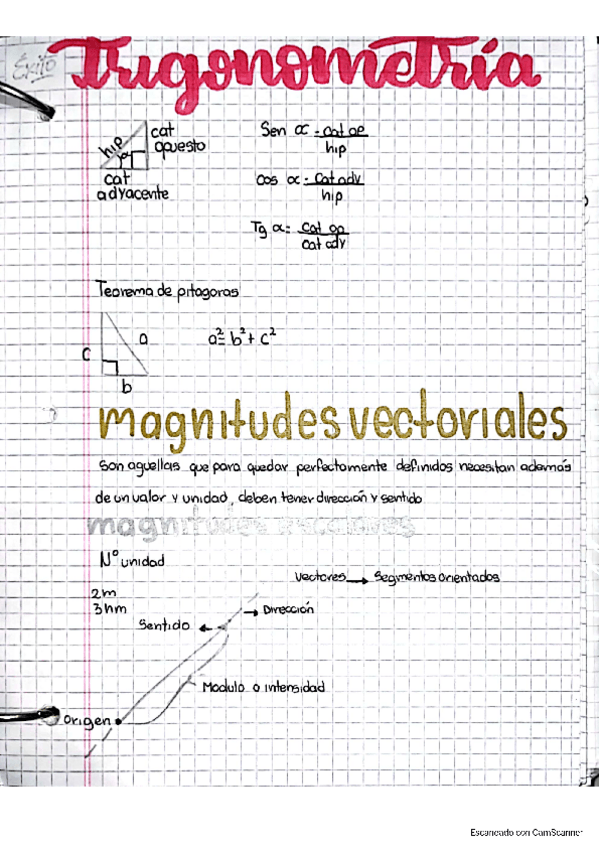 Éxito
Trigonometría
hip
α
cat
opuesto
cat
adyacente
Sen α = cat op
hip
cos α = Cat adv
hip
Tg α = Cat op
cat adv
Teorema de pitagoras
c
a
b
a² = b² + c²
magnitudes vectoriales
Son aquellas que para quedar perfectamente definidos necesitan además
de un valor y unidad, deben tener dirección y sentido
magnitudes escalares
N° unidad
2m
3hm
Vectores → Segmentos orientados
→ Dirección
Sentido ←
Modulo o intensidad
Origen
Escaneado con CamScanner